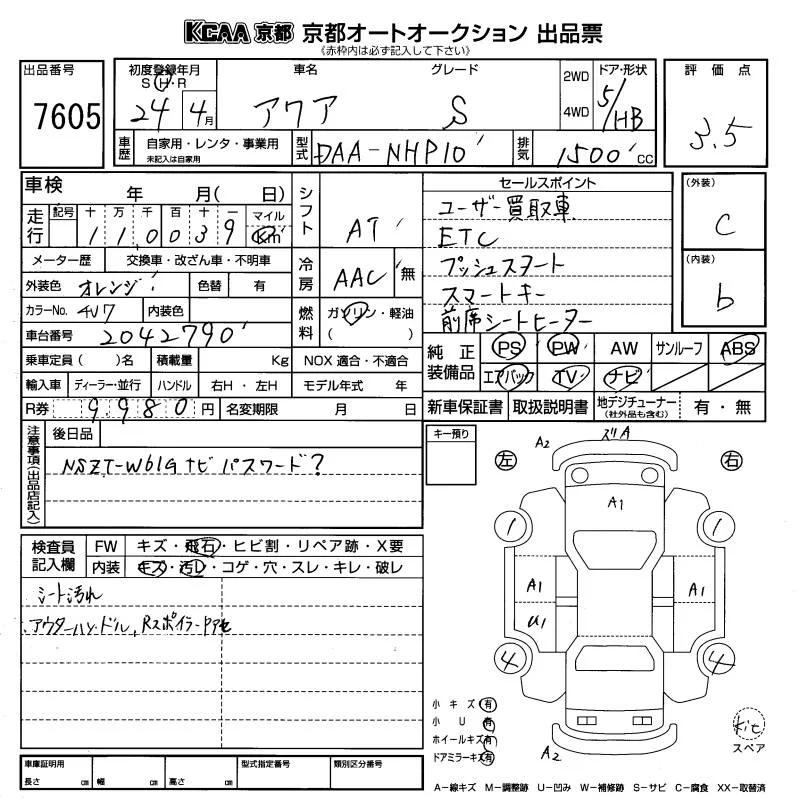 KCAA 京都 京都オートオークション 出品票
《赤枠内は必ず記入して下さい》
出品番号
7605
初度登録年月
S・H・R
24 4月
車名
アクア
グレード
S
2WD
4WD
ドア・形状
5/HB
評価点
3.5
車歴
自家用・レンタ・事業用
未記入は自家用
型式
DAA-NHP10
排気
1500 cc
車検
年 月( 日)
シフト
AT
走行
記号 十 万 千 百 十 一
1 1 0 0 3 9
マイル
Km
メーター歴 交換車・改ざん車・不明車
冷房
AAC
無
外装色 オレンジ 色替 有
カラーNo. 4V7 内装色
燃料
ガソリン・軽油
( )
車台番号 2042790
乗車定員( )名 積載量 Kg NOX 適合・不適合
輸入車 ディーラー・並行 ハンドル 右H・左H モデル年式 年
R券 9,980 円 名変期限 月 日
セールスポイント
ユーザー買取車
ETC
プッシュスタート
スマートキー
前席シートヒーター
(外装)
C
(内装)
b
純正装備品
PS PW AW サンルーフ ABS
エアバック TV ナビ
新車保証書 取扱説明書 地デジチューナー
(社外品も含む)
有・無
注意事項(出品店記入)
後日品
NSZT-W61G ナビ パスワード?
キー預り
検査員記入欄
FW キズ・飛石・ヒビ割・リペア跡・X要
内装 キズ・汚レ・コゲ・穴・スレ・キレ・破レ
シート汚れ
アウターハンドル,Rスポイラー
左
右
A2
ズリA
A1
1
1
A1
A1
U1
4
4
A2
小キズ 有
小U 有
ホイールキズ 有
ドアミラーキズ 有
kit
スペア
車庫証明用
長さ cm 幅 cm 高さ cm
型式指定番号
類別区分番号
A−線キズ M−調整跡 U−凹み W−補修跡 S−サビ C−腐食 XX−取替済